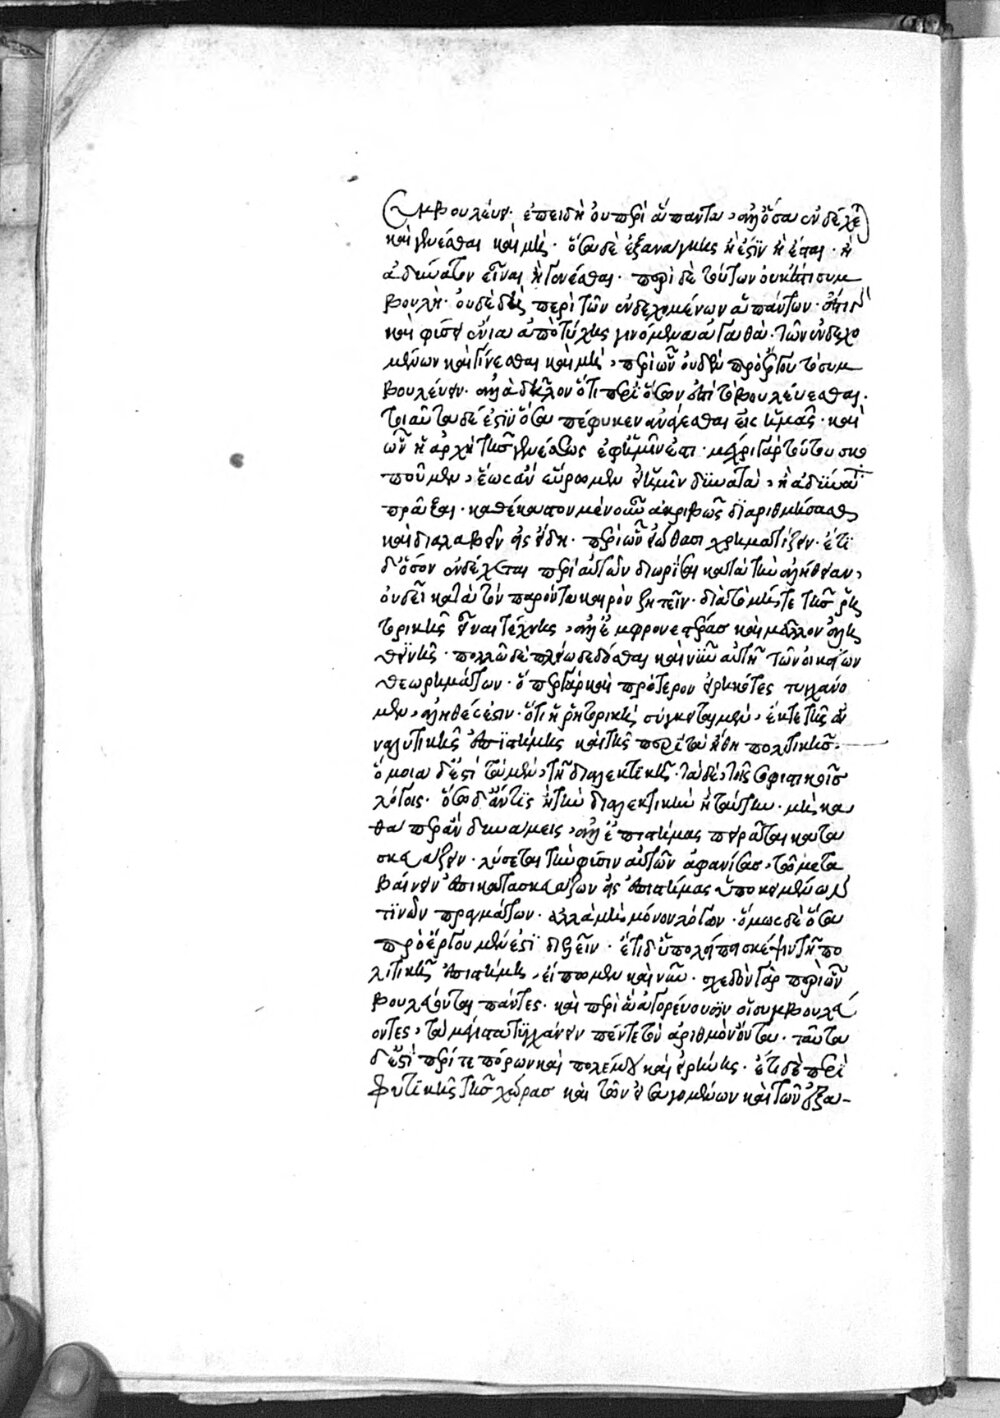 συμβουλεύει· ἐπειδὴ οὐ περὶ ἅπαντα, ἀλλ' ὅσα ἐνδέχεται
καὶ γενέσθαι καὶ μή· ὅσα δὲ ἐξ ἀνάγκης ἢ ἐστὶν ἢ ἔσται· ἢ
ἀδύνατον εἶναι ἢ γενέσθαι· περὶ δὲ τούτων οὐκ ἔστι συμ
βουλή· οὐδὲ δὴ περὶ τῶν ἐνδεχομένων ἁπάντων· ἔστι γὰρ
καὶ φύσει ἔνια ἀπὸ τύχης γινόμενα ἀγαθὰ· τῶν ἐνδεχο
μένων καὶ γίνεσθαι καὶ μή, περὶ ὧν οὐδὲν πρὸ ἔργου τὸ συμ
βουλεύειν· ἀλλὰ δῆλον ὅτι περὶ ὅσων ἐστὶ τὸ βουλεύεσθαι·
τοιαῦτα δέ ἐστιν ὅσα πέφυκεν ἀνάγεσθαι εἰς ἡμᾶς· καὶ
ὧν ἡ ἀρχὴ τῆς γενέσεως ἐφ' ἡμῖν ἐστι· μέχρι γὰρ τούτου σκο
ποῦμεν, ἕως ἂν εὕρωμεν εἰ ἡμῖν δυνατὰ, ἢ ἀδύνατα
πρᾶξαι· καθ' ἕκαστον μὲν οὖν ἀκριβῶς διαριθμήσασθαι
καὶ διαλαβεῖν εἰς εἴδη· περὶ ὧν εἰώθασι χρηματίζειν· ἔτι
δ' ὅσον ἐνδέχεται περὶ αὐτῶν διορίσαι κατὰ τὴν ἀλήθειαν,
οὐ δεῖ κατὰ τὸν παρόντα καιρὸν ζητεῖν· διὰ τὸ μήτε τῆς ῥη
τορικῆς εἶναι τέχνης, ἀλλ' ἐμφρονεστέρας καὶ μᾶλλον ἀλη
θινῆς· πολλῷ δὲ πλείω δεδόσθαι καὶ νῦν αὐτῇ τῶν οἰκείων
θεωρημάτων· ὅπερ γὰρ καὶ πρότερον εἰρηκότες τυγχάνο
μεν, ἀληθές ἐστιν· ὅτι ἡ ῥητορικὴ σύγκειται μὲν, ἔκ τε τῆς ἀ
ναλυτικῆς ἐπιστήμης καὶ τῆς περὶ τὰ ἤθη πολιτικῆς·
ὁμοία δ' ἐστὶ τὰ μὲν, τῇ διαλεκτικῇ· τὰ δὲ, τοῖς σοφιστικοῖς
λόγοις· ὅσῳ δ' ἄν τις ἢ τὴν διαλεκτικὴν ἢ ταύτην· μὴ κα
θάπερ ἂν δυνάμεις, ἀλλ' ἐπιστήμας πειρᾶται κατα
σκευάζειν· λήσεται τὴν φύσιν αὐτῶν ἀφανίσας, τῷ μετα
βαίνειν ἐπισκατασκευάζων εἰς ἐπιστήμας ὑποκειμένων
τινῶν πραγμάτων· ἀλλὰ μὴ μόνον λόγων· ὅμως δὲ ὅσα
πρὸ ἔργου μέν ἐστι διελεῖν· ἔτι δ' ὑπολείπει σκέψιν τῇ πο
λιτικῇ ἐπιστήμῃ, εἴπωμεν καὶ νῦν· σχεδὸν γὰρ περὶ ὧν
βουλεύονται πάντες· καὶ περὶ ἃ ἀγορεύουσιν οἱ συμβουλεύ
οντες, τὰ μέγιστα τυγχάνει πέντε τὸν ἀριθμὸν ὄντα· ταῦτα
δ' ἐστὶ περί τε πόρων καὶ πολέμου καὶ εἰρήνης· ἔτι δὲ περὶ
φυλακῆς τῆς χώρας καὶ τῶν εἰσαγομένων καὶ τῶν ἐξα-